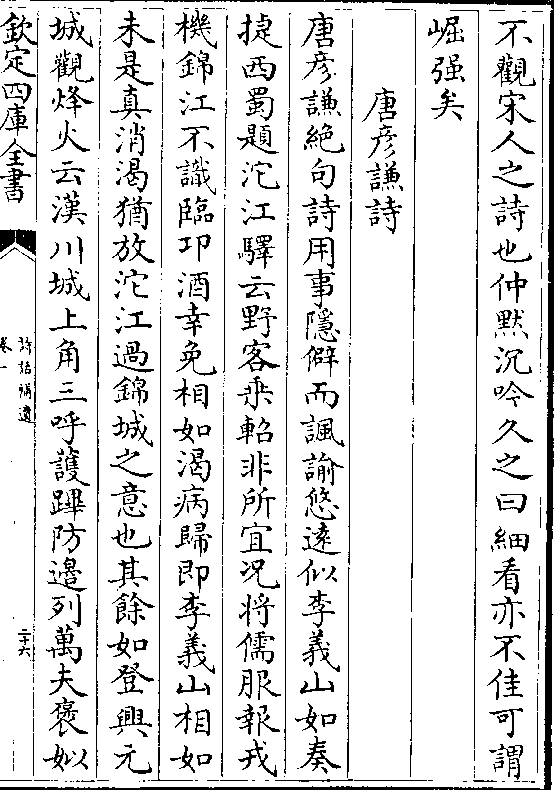 不觀宋人之詩也仲黙沉吟久之曰細看亦不佳可謂
崛强矣
唐彦謙詩
唐彦謙絶句詩用事隱僻而諷諭悠逺似李義山如奏
捷西蜀題沱江驛云野客乗軺非所宜况將儒服報戎
機錦江不識臨卭酒幸免相如渴病歸即李義山相如
未是真消渴猶放沱江過錦城之意也其餘如登興元
城觀烽火云漢川城上角三呼護蹕防邊列萬夫褒姒
欽定四庫全書
詩話補遺
卷一
二十六